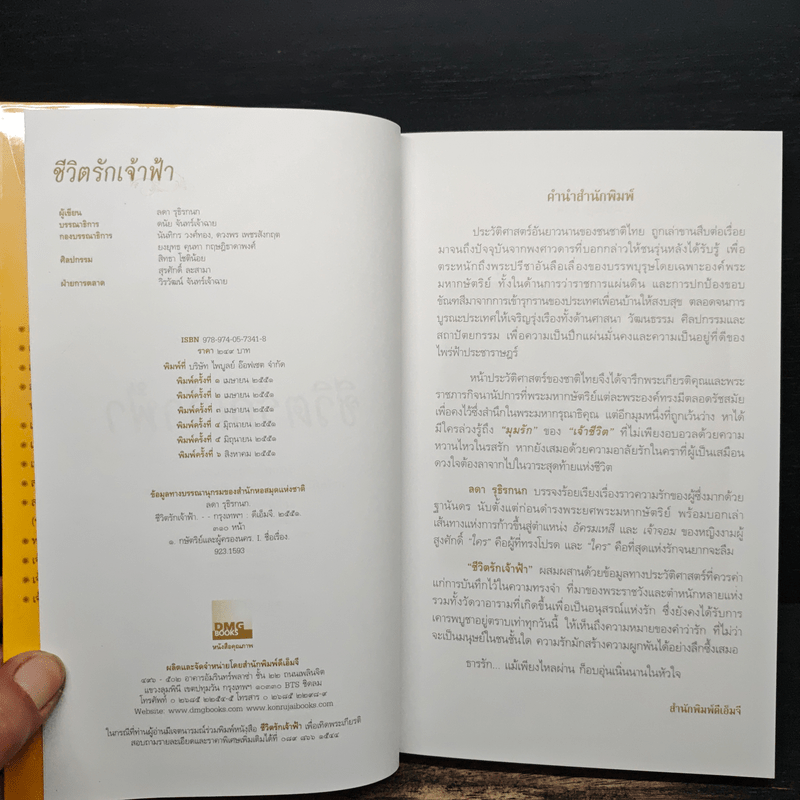 ชีวิตรักเจ้าฟ้า
ผู้เขียน ลดา รุธิรกนก
บรรณาธิการ ดนัย จันทร์เจ้าฉาย
กองบรรณาธิการ นันทิกร วงศ์ทอง, ดวงพร เพชรสังกฤต
ยงยุทธ คุนทา กฤษฎิธาดาพงศ์
ศิลปกรรม สิทธา โชติน้อย
สุรศักดิ์ ละสามา
ฝ่ายการตลาด วิรวัฒน์ จันทร์เจ้าฉาย
ISBN 978-974-05-7341-8
ราคา ๒๔๙ บาท
พิมพ์ที่ บริษัท ไพบูลย์ อ๊อฟเซต จำกัด
พิมพ์ครั้งที่ ๑ เมษายน ๒๕๕๑
พิมพ์ครั้งที่ ๒ เมษายน ๒๕๕๑
พิมพ์ครั้งที่ ๓ เมษายน ๒๕๕๑
พิมพ์ครั้งที่ ๔ มิถุนายน ๒๕๕๑
พิมพ์ครั้งที่ ๕ มิถุนายน ๒๕๕๑
พิมพ์ครั้งที่ ๖ สิงหาคม ๒๕๕๑
ข้อมูลทางบรรณานุกรมของสำนักหอสมุดแห่งชาติ
ลดา รุธิรกนก
ชีวิตรักเจ้าฟ้า. - - กรุงเทพฯ : ดีเอ็มจี. ๒๕๕๑.
๓๑๐ หน้า
๑. กษัตริย์และผู้ครองนคร. I. ชื่อเรื่อง.
923.1593
DMG
BOOKS
หนังสือคุณภาพ
ผลิตและจัดจำหน่ายโดยสำนักพิมพ์ดีเอ็มจี
๔๙๖ - ๕๐๒ อาคารอัมรินทร์พลาซ่า ชั้น ๒๒ ถนนเพลินจิต
แขวงลุมพินี เขตปทุมวัน กรุงเทพฯ ๑๐๓๓๐ BTS ชิดลม
โทรศัพท์ ๐ ๒๖๘๕ ๒๒๕๔-๕ โทรสาร ๐ ๒๖๘๕ ๒๒๙๘-๙
Website: www.dmgbooks.com www.konrujaibooks.com
ในกรณีที่ท่านผู้อ่านมีเจตนารมณ์ร่วมพิมพ์หนังสือ ชีวิตรักเจ้าฟ้า เพื่อเทิดพระเกียรติ
สอบถามรายละเอียดและราคาพิเศษเพิ่มเติมได้ที่ ๐๘๙ ๘๖๖ ๑๕๔๔
คำนำสำนักพิมพ์
ประวัติศาสตร์อันยาวนานของชนชาติไทย ถูกเล่าขานสืบต่อเรื่อย
มาจนถึงปัจจุบันจากพงศาวดารที่บอกกล่าวให้ชนรุ่นหลังได้รับรู้ เพื่อ
ตระหนักถึงพระปรีชาอันลือเลื่องของบรรพบุรุษโดยเฉพาะองค์พระ
มหากษัตริย์ ทั้งในด้านการว่าราชการแผ่นดิน และการปกป้องขอบ
ขัณฑสีมาจากการเข้ารุกรานของประเทศเพื่อนบ้านให้สงบสุข ตลอดจนการ
บูรณะประเทศให้เจริญรุ่งเรืองทั้งด้านศาสนา วัฒนธรรม ศิลปกรรมและ
สถาปัตยกรรม เพื่อความเป็นปึกแผ่นมั่นคงและความเป็นอยู่ที่ดีของ
ไพร่ฟ้าประชาราษฎร์
หน้าประวัติศาสตร์ของชาติไทยจึงได้จารึกพระเกียรติคุณและพระ
ราชภารกิจนานัปการที่พระมหากษัตริย์แต่ละพระองค์ทรงมีตลอดรัชสมัย
เพื่อคงไว้ซึ่งสำนึกในพระมหากรุณาธิคุณ แต่อีกมุมหนึ่งที่ถูกเว้นว่าง หาได้
มีใครล่วงรู้ถึง "มุมรัก" ของ "เจ้าชีวิต" ที่ไม่เพียงอบอวลด้วยความ
หวานไหวในรสรัก หากยังเสมอด้วยความอาลัยรักในคราที่ผู้เป็นเสมือน
ดวงใจต้องลาจากไปในวาระสุดท้ายแห่งชีวิต
ลดา รุธิรกนก บรรจงร้อยเรียงเรื่องราวความรักของผู้ซึ่งมากด้วย
ฐานันดร นับตั้งแต่ก่อนดำรงพระยศพระมหากษัตริย์ พร้อมบอกเล่า
เส้นทางแห่งการก้าวขึ้นสู่ตำแหน่ง อัครมเหสี และ เจ้าจอม ของหญิงงามผู้
สูงศักดิ์ "ใคร" คือผู้ที่ทรงโปรด และ "ใคร" คือที่สุดแห่งรักจนยากจะลืม
"ชีวิตรักเจ้าฟ้า" ผสมผสานด้วยข้อมูลทางประวัติศาสตร์ที่ควรค่า
แก่การบันทึกไว้ในความทรงจำ ที่มาของพระราชวังและตำหนักหลายแห่ง
รวมทั้งวัดวาอารามที่เกิดขึ้นเพื่อเป็นอนุสรณ์แห่งรัก ซึ่งยังคงได้รับการ
เคารพบูชาอยู่ตราบเท่าทุกวันนี้ ให้เห็นถึงความหมายของคำว่ารัก ที่ไม่ว่า
จะเป็นมนุษย์ในชนชั้นใด ความรักมักสร้างความผูกพันได้อย่างลึกซึ้งเสมอ
ธารรัก... แม้เพียงไหลผ่าน ก็อบอุ่นเนิ่นนานในหัวใจ
สำนักพิมพ์ดีเอ็มจี